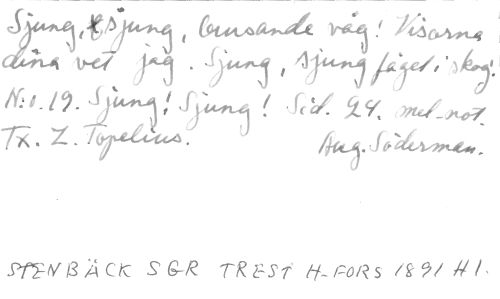 Sjung, sjung, brusande våg! Visorna
dina vet jag. Sjung, sjung fågel i skog!
N:o. 19. Sjung! Sjung! Sid. 24. mel-not.
Tx. Z. Topelius. Aug. Söderman.
STENBÄCK SGR TREST H-FORS 1891 H1.